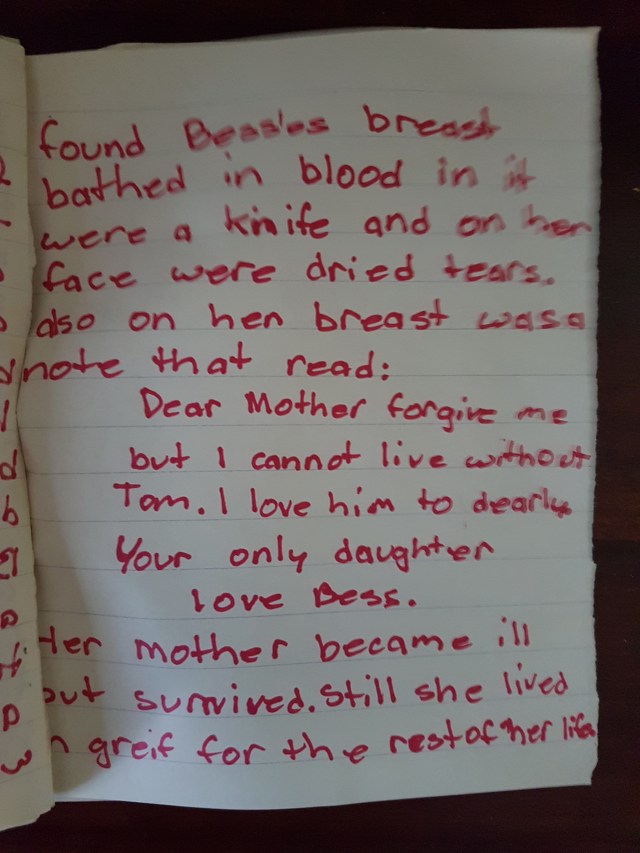 found Bessies breast
bathed in blood in it
were a knife and on her
face were dried tears.
also on her breast was a
note that read:
Dear Mother forgive me
but I cannot live without
Tom. I love him to dearly
Your only daughter
love Bess.
Her mother became ill
but survived. Still she lived
in greif for the rest of her life.